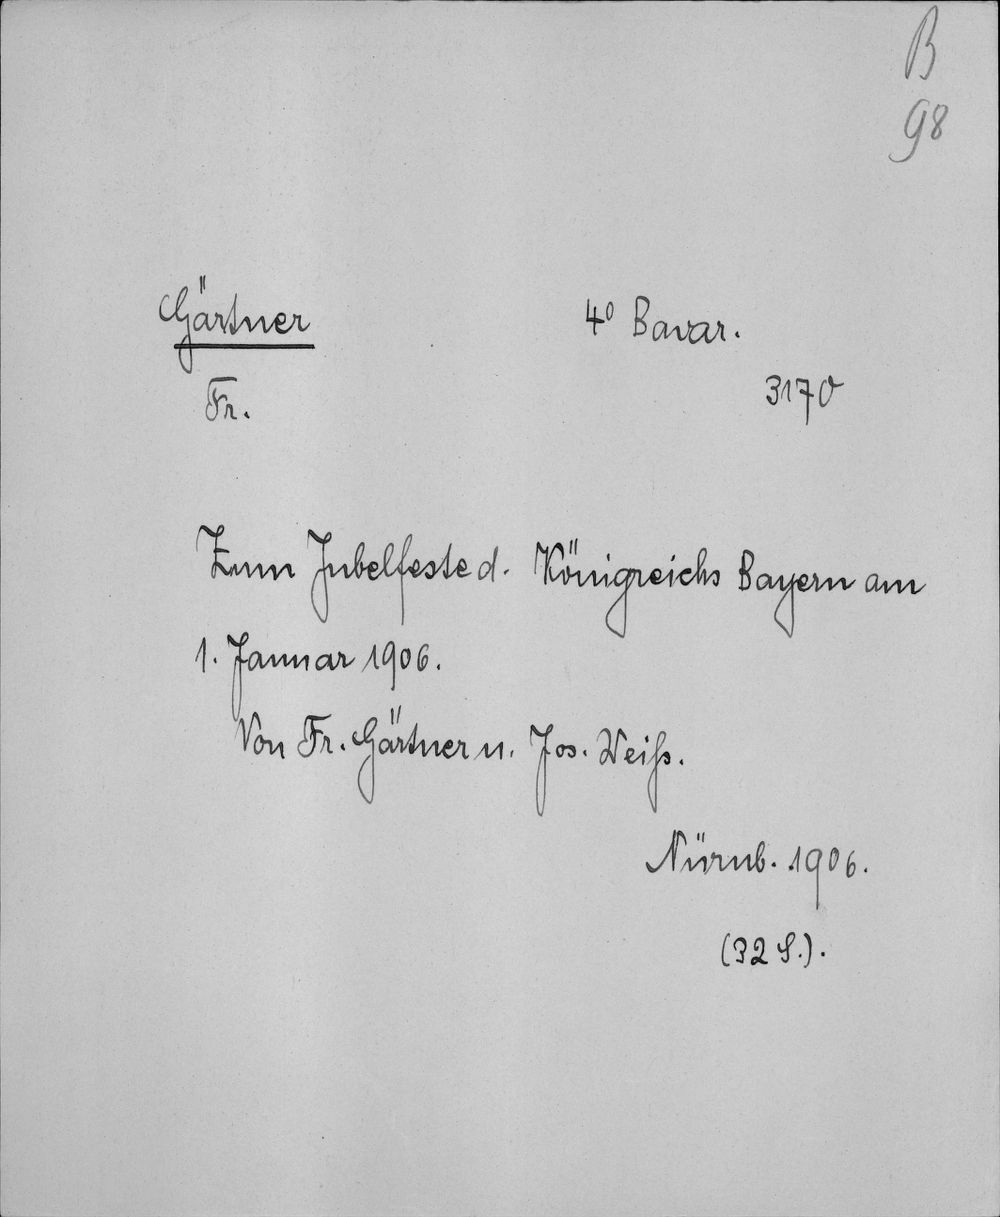 B
98
Gärtner
4° Bavar.
Fr.
3170
Zum Jubelfeste d. Königreichs Bayern am
1. Januar 1906.
Von Fr. Gärtner u. Jos. Weiß.
Nürnb. 1906.
(32 S.).